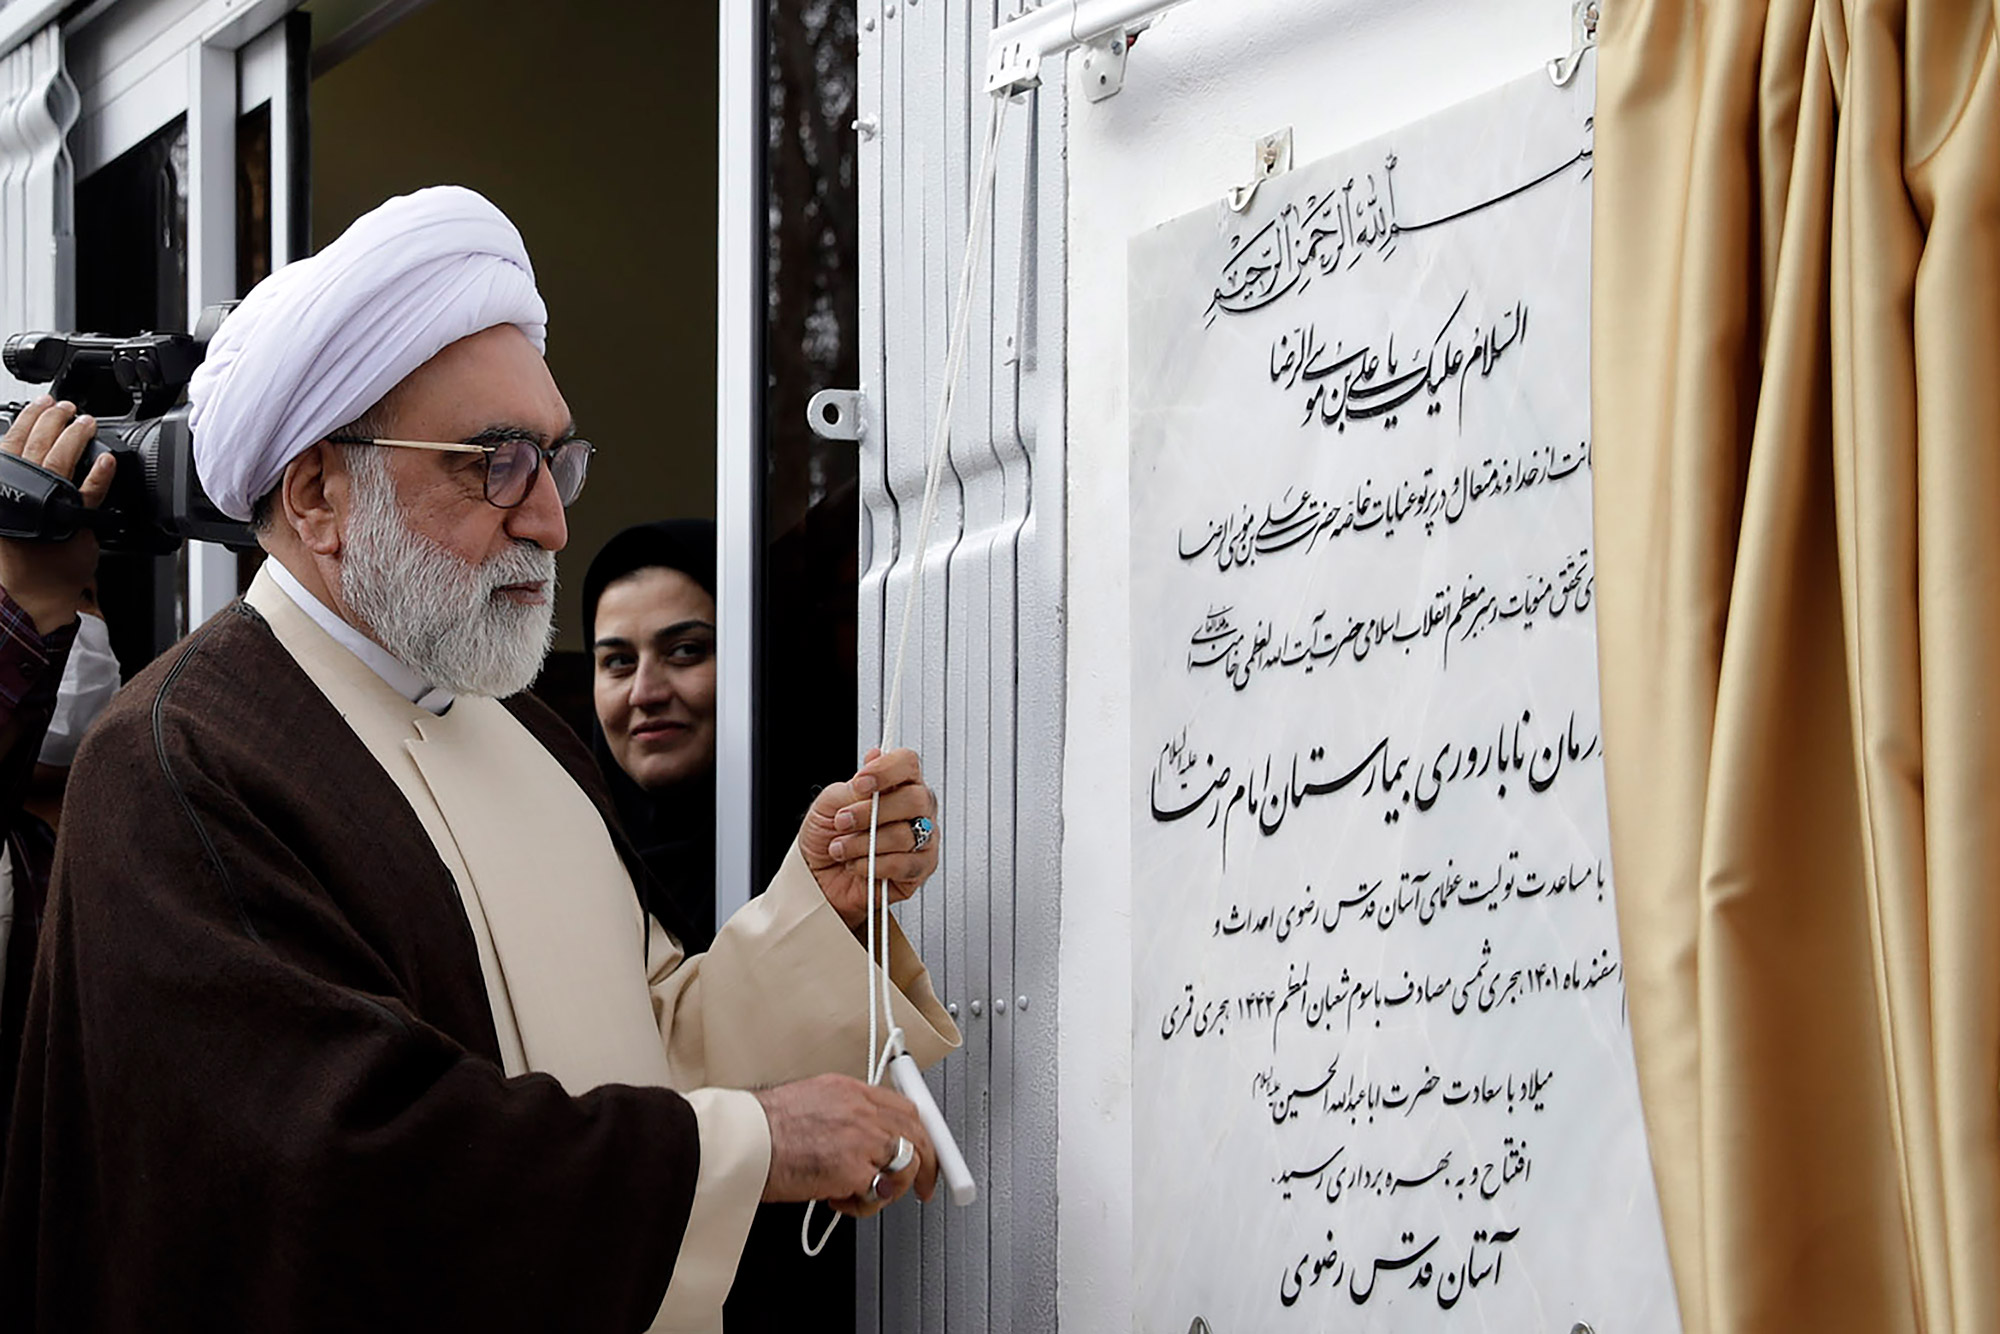 بسم الله الرحمن الرحیم
السلام علیک یا علی بن موسی الرضا
از خداوند متعال و در پرتو عنایات خاصه حضرت علی بن موسی الرضا
تحقق منویات رهبر معظم انقلاب اسلامی حضرت آیت الله العظمی خامنه‌ای
درمان ناباروری بیمارستان امام رضا علیه السلام
با مساعدت تولیت عظمای آستان قدس رضوی احداث و
اسفند ماه ۱۴۰۱ هجری شمسی مصادف با سوم شعبان المعظم ۱۴۴۴ هجری قمری
میلاد با سعادت حضرت اباعبدالله الحسین علیه السلام
افتتاح و به بهره برداری رسید.
آستان قدس رضوی